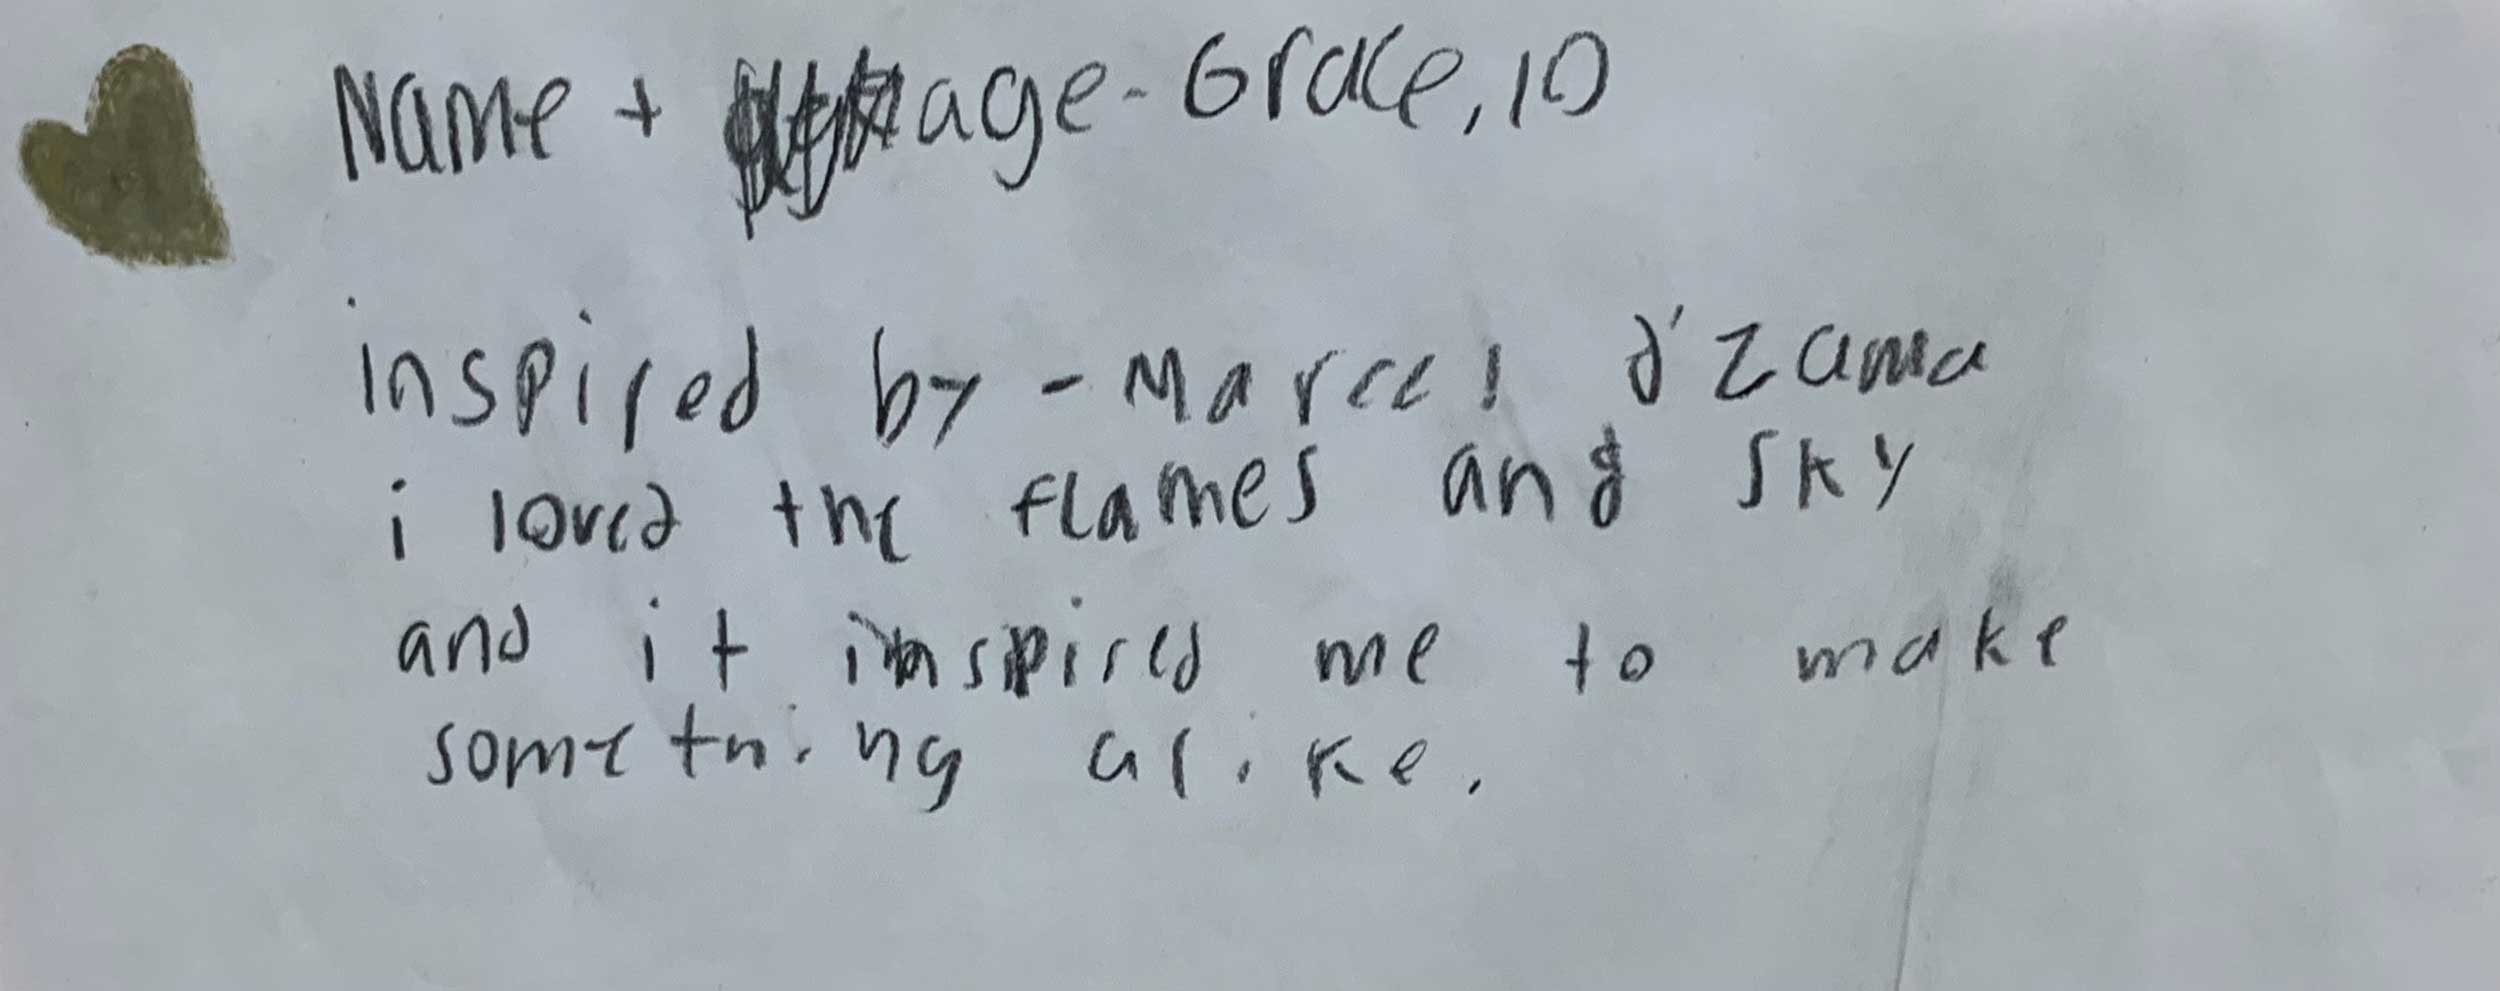 Name + age - Grace, 10
inspired by - Marcel d'Zama
i loved the flames and sky
and it inspired me to make
something alike.